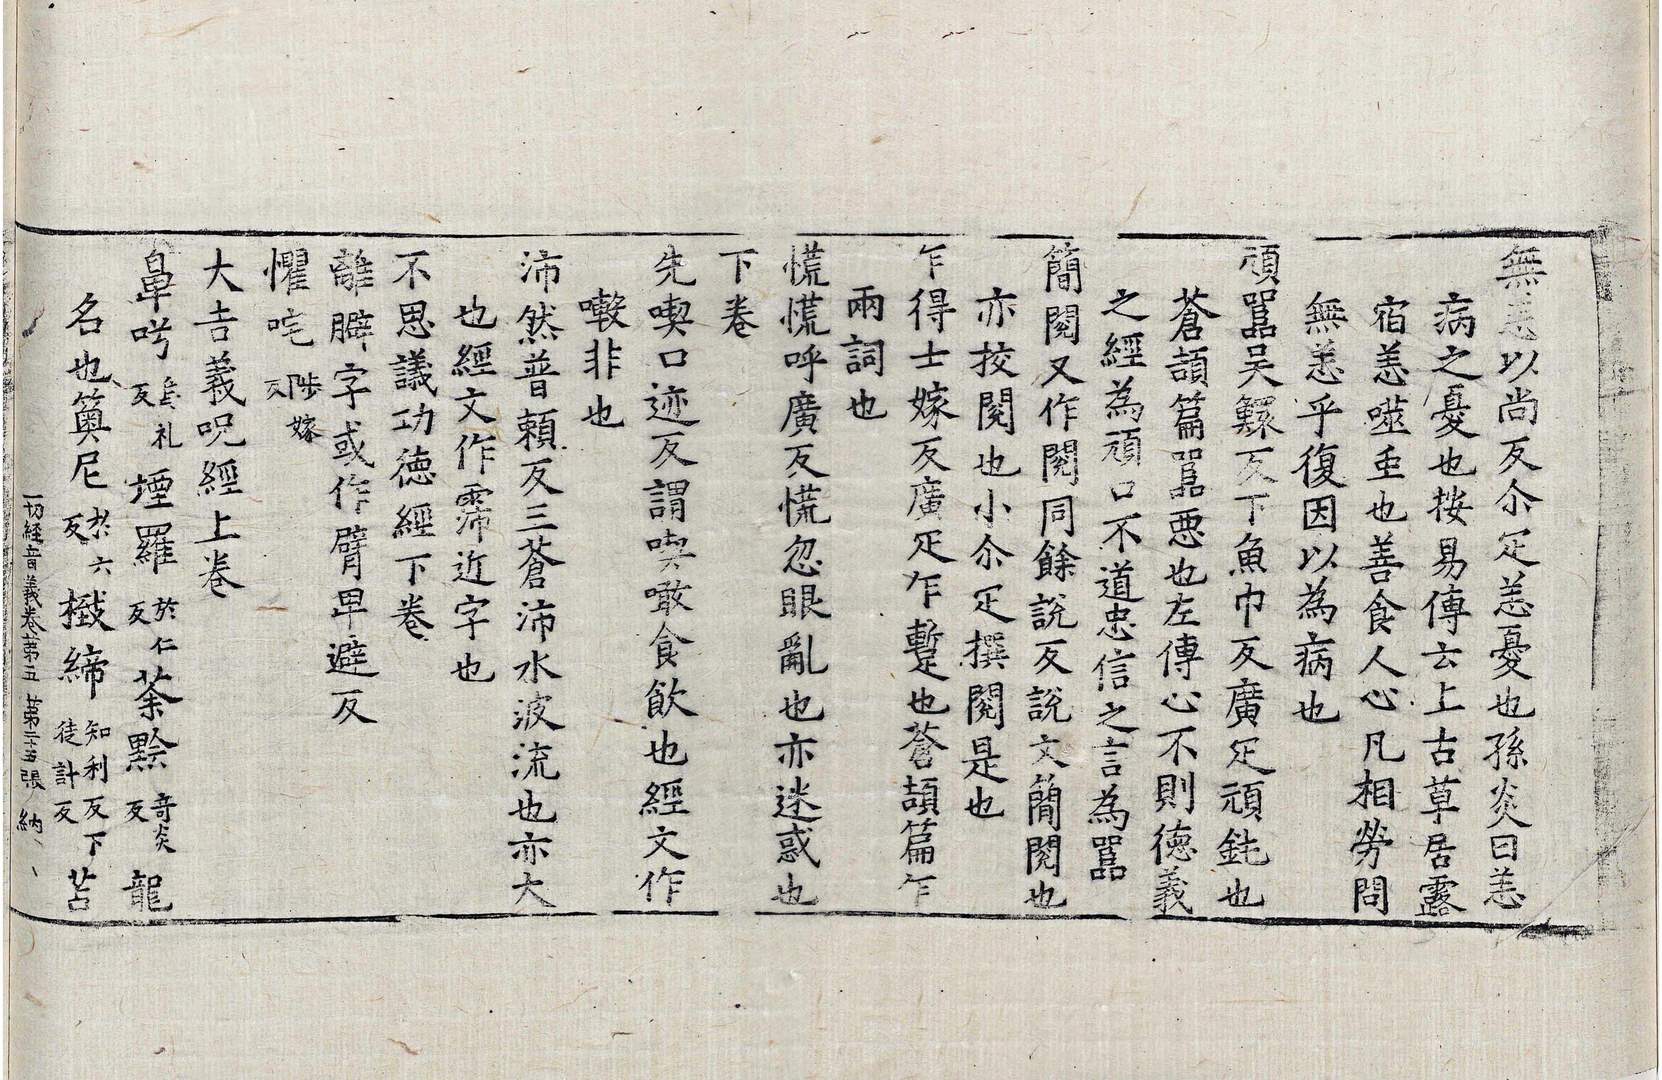 無恙以尚反尒疋恙憂也孫炎曰恙
病之憂也按易傳云上古草居露
宿恙噬虫也善食人心凡相勞問
無恙乎復因以為病也
頑嚚吴鰥反下魚巾反廣疋頑鈍也
蒼頡篇嚚惡也左傳心不則德義
之經為頑口不道忠信之言為嚚
簡閱又作閱同餘說反說文簡閱也
亦挍閱也小尒疋撰閱是也
乍得士嫁反廣疋乍蹔也蒼頡篇乍
兩詞也
慌慌呼廣反慌忽眼亂也亦迷惑也
下卷
先喫口迹反謂喫噉食飲也經文作
㗜非也
沛然普賴反三蒼沛水波流也亦大
也經文作霈近字也
不思議功德經下卷
離臂字或作臂卑避反
懼咤陟嫁反
大吉義呪經上卷
鼻呺烏礼反堙羅於仁反荼黔奇炎反龍
名也䉛尼於六反檝締知利反下徒計反苫
一切經音義卷第五 第二十五張 納